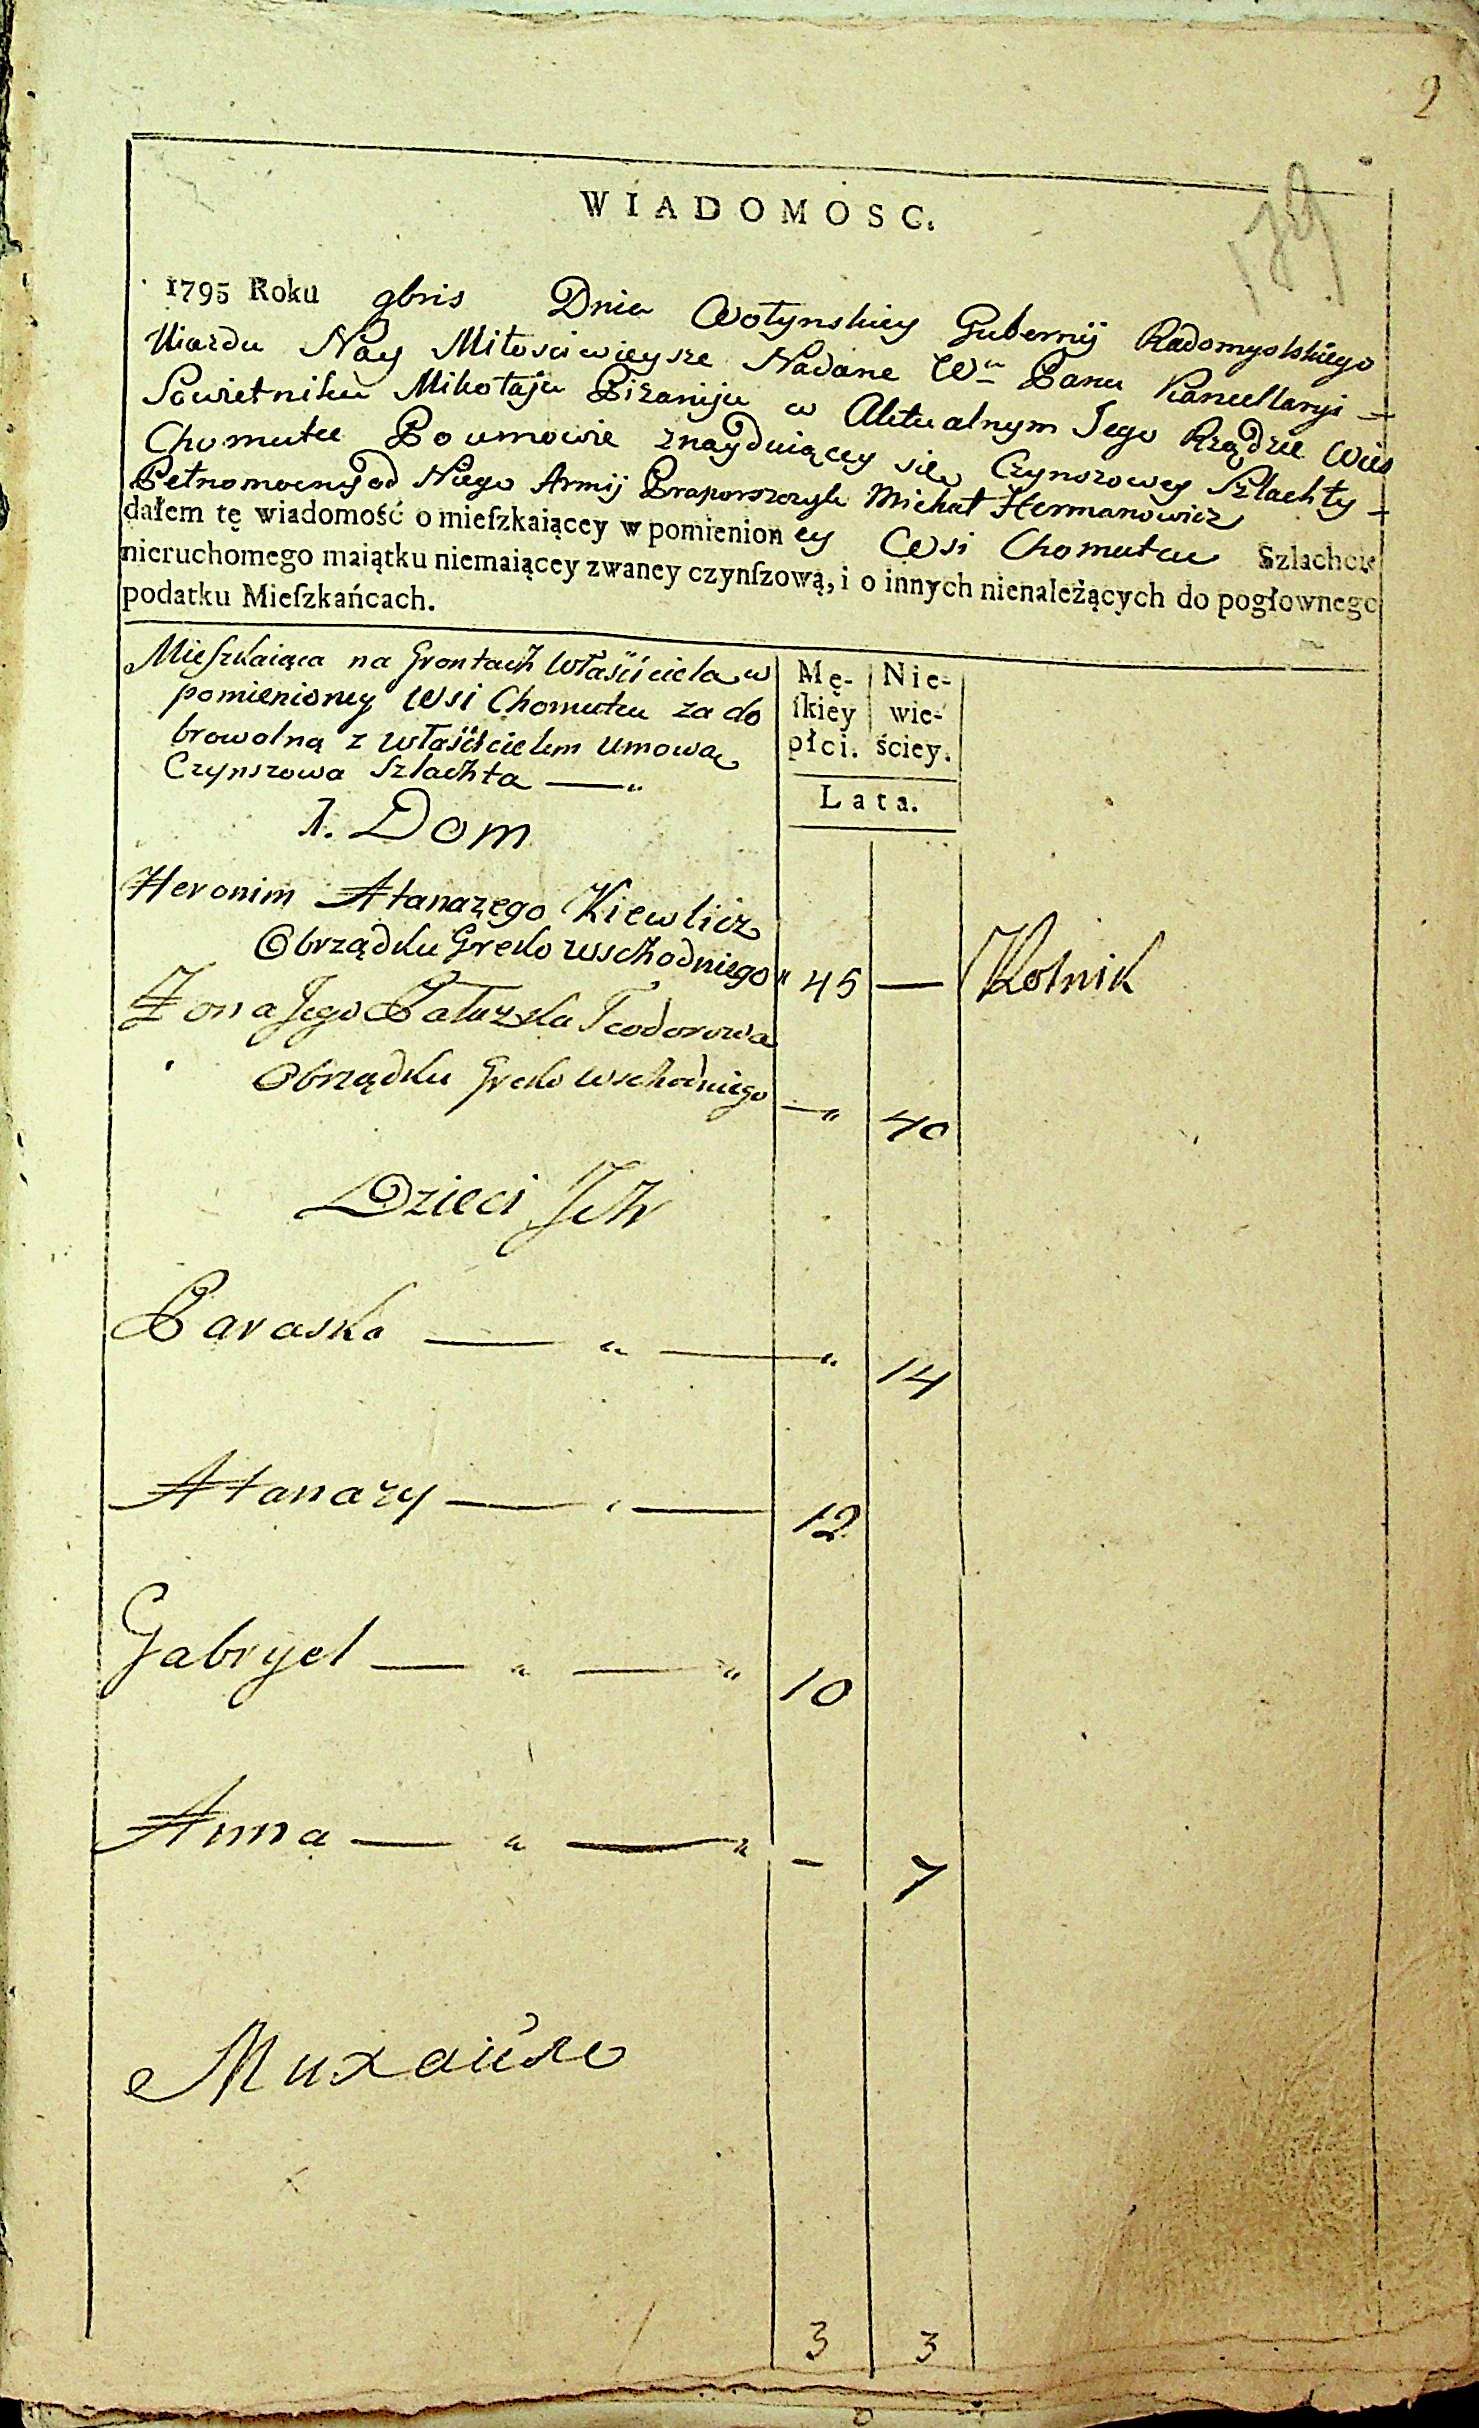 2
179
WIADOMOSC.
1795 Roku 9bris Dnia Wołynskiey Gubernij Radomyslskiego
Uiazdu Nay Miłosciwieysze Nadane Wu Panu Kancellaryi —
Sowietniku Mikołaju Piżaniju w Aktualnym Jego Rządzie Wies
Chomutec Po umowie znayduiącey się Czynszowey Szlachty —
Pełnomocny od Niego Armij Praporszczyk Michał Hermanowicz
dałem tę wiadomość o mieſzkaiącey w pomienion ey Wsi Chomutcu Szlachcie
nieruchomego maiątku niemaiącey zwaney czynſzową, i o innych nienależących do pogłownego
podatku Mieſzkańcach.
Mieſzkaiąca na Grontach Właściciela w
pomienioney Wsi Chomutcu za do
browolną z właścicielem umową
Czynszowa Szlachta — "
Mę-
ſkiey
płci.
Nie-
wie-
ściey.
Lata.
1. Dom
Heronim Atanazego Kiewlicz
Obrządku Greko wschodniego " 45 — Rolnik
Żona Jego Pałazka Teodorowa
Obrządku Greko wschodniego — " 40
Dzieci Ich
Paraska — " — " 14
Atanazy — " — 12
Gabryel — " — " 10
Anna — " — " – 7
Михайло
3 3